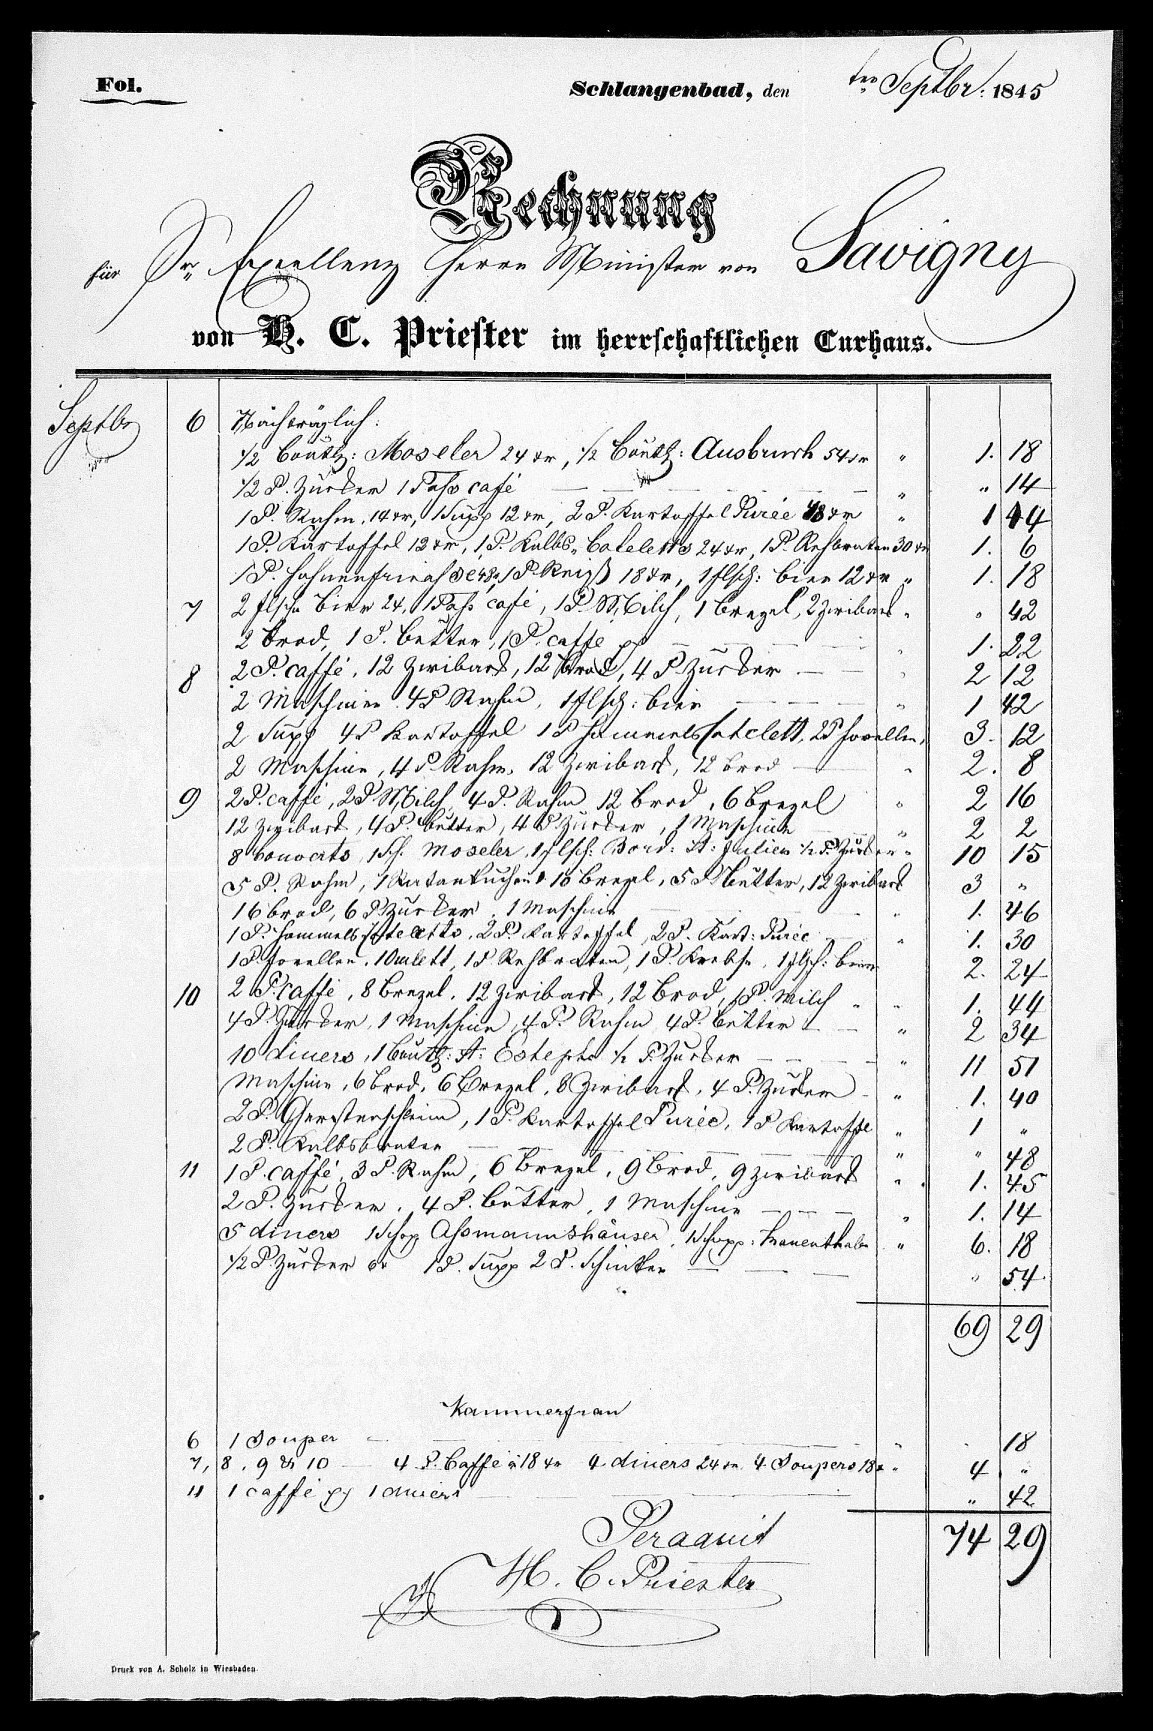 Fol.
Schlangenbad, den ten Septbr: 1845
Rechnung
für Sr. Excellenz Herrn Minister von Savigny
von H. C. Priester im herrschaftlichen Curhaus.
Septbr 6 Nachträglich:
1/2 Boutlg: Moseler 24 xr, 1/2 Boutlg: Ausbruch 54 xr " 1. 18
1/2 P. Zucker 1 Tass café " " 14
1 P. Rahm, 14 xr, 1 Supp 12 xr, 2 P. Kartoffel Purée 48 xr " 1 14
1 P. Kartoffel 12 xr, 1 P. Kalbs-Coteletts 24 xr, 1 P. Rehbraten 30 xr 1. 6
1 P. 1 P. Reiß 18 xr, 1 flsch: bier 12 xr " 1. 18
7 2 flsch Bier 24, 1 Tass café, 1 P. Milch, 1 Brezel, 2 Zwiback " " 42
2 Brod, 1 P. Butter, 1 P. caffe " 1. 22
8 2 P. caffé, 12 Zwiback, 12 Brod, 4 P Zucker " 2 12
2 Maschine 4 P Rahm, 1 flsch: bier " 1 42
2 Supp 4 P Kartoffel 1 P Hammels Cotelett, 2 P Forellen, 3. 12
2 Maschine, 4 P. Rahm, 12 Zwiback, 12 brod " 2. 8
9 2 P. caffé, 2 P Milch, 4 P. Rahm 12 Brod, 6 Brezel " 2 16
12 Zwiback, 4 P. Butter, 4 P Zucker, 1 Maschine " 2 2
8 Couverts, 1 Moseler, 1 flsch: Bord: St: Julien 1/2 P. Zucker " 10 15
5 P. Rahm, 1 16 Brezel, 5 P Butter, 12 Zwiback 3 "
16 brod, 6 P Zucker, 1 Maschine " 1. 46
1 P. Hammels Coteletts, 2 P. Kartoffel, 2 P. Kart: Purée " 1. 30
1 P Forellen, 1 Omlett, 1 P Rehbraten, 1 P. Krebse, 1 flsch: bier 2. 24
10 2 P. Caffé, 8 Brezel, 12 Zwiback, 12 Brod, 1 P. Milch " " 1. 44
4 P. Zucker, 1 Maschine, 4 P. Rahm 4 P. Butter " 2 34
10 diners, 1 Boutlg: St: Estephe 1/2 P. Zucker " 11 51
Maschine, 6 brod, 6 Brezel, 8 Zwiback, 4 P. Zucker " 1. 40
2 P. Gerstenschleim, 1 P. Kartoffel Purée, 1 P Kartoffel " 1 "
2 P. Kalbsbraten " " 48
11 1 P. caffé, 3 P. Rahm, 6 Brezel, 9 Brod, 9 Zwiback " 1. 45
2 P. Zucker, 4 P. Butter, 1 Maschine " 1. 14
5 diners 1 Schop Assmannshäuser, 1 Schopp: " 6. 18
1/2 P. Zucker 1 P. Supp 2 P. Schinken " 54
69 29
Kammerfrau
6 1 Souper " 18
7, 8, 9 & 10 4 P. Caffé à 18 xr 4 diners 24 xr 4 Soupers 18 x " 4 "
11 1 caffé 1 diners " 42
74 29
Peraquit
H. C. Priester
Druck von A. Scholz in Wiesbaden